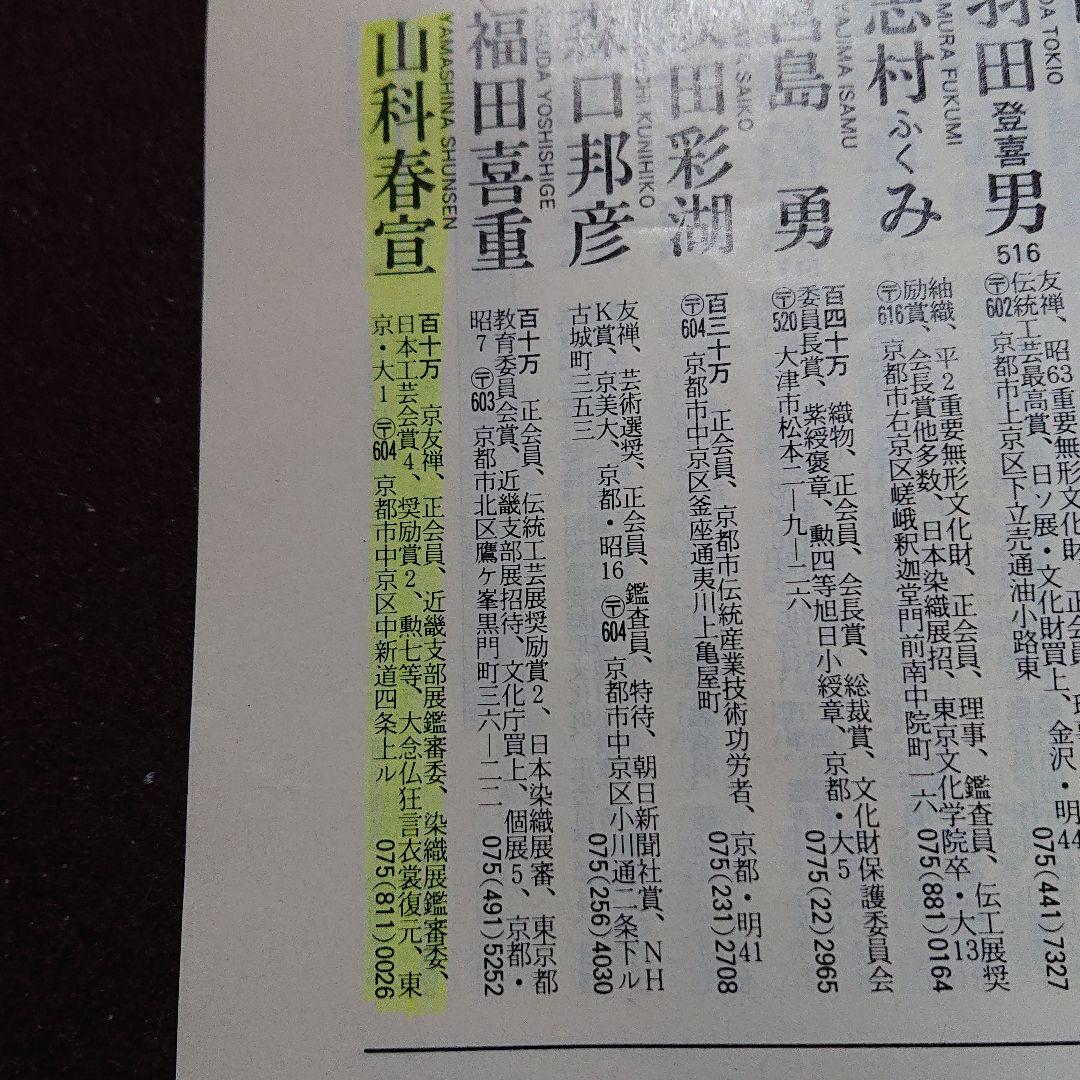 羽田登喜男
DA TOKIO
516
友禅、昭63重要無形文化財、正会員、理
伝統工芸最高賞、日ソ展・文化財買上、金沢・明44
〒602 京都市上京区下立売通油小路東
075(441)7327
志村ふくみ
MURA FUKUMI
紬織、平2重要無形文化財、正会員、理事、鑑査員、伝工展奨
励賞、会長賞他多数、日本染織展招、東京文化学院卒・大13
〒616 京都市右京区嵯峨釈迦堂門前南中院町一六
075(881)0164
島 勇
YAJIMA ISAMU
百四十万 織物、正会員、会長賞、総裁賞、文化財保護委員会
委員長賞、紫綬褒章、勲四等旭日小綬章、京都・大5
〒520 大津市松本二―九―二六
0775(22)2965
田彩湖
SAIKO
百三十万 正会員、京都市伝統産業技術功労者、京都・明41
〒604 京都市中京区釜座通夷川上亀屋町
075(231)2708
森口邦彦
CHI KUNIHIKO
友禅、芸術選奨、正会員、鑑査員、特待、朝日新聞社賞、NH
K賞、京美大、京都・昭16 〒604 京都市中京区小川通二条下ル
古城町三五三
075(256)4030
福田喜重
UDA YOSHISHIGE
百十万 正会員、伝統工芸展奨励賞2、日本染織展審、東京都
教育委員会賞、近畿支部展招待、文化庁買上、個展5、京都・
昭7 〒603 京都市北区鷹ヶ峯黒門町三六―二二
075(491)5252
山科春宣
YAMASHINA SHUNSEN
百十万 京友禅、正会員、近畿支部展鑑審委、染織展鑑審委、
日本工芸会賞4、奨励賞2、勲七等、大念仏狂言衣裳復元、東
京・大1 〒604 京都市中京区中新道四条上ル
075(811)0026